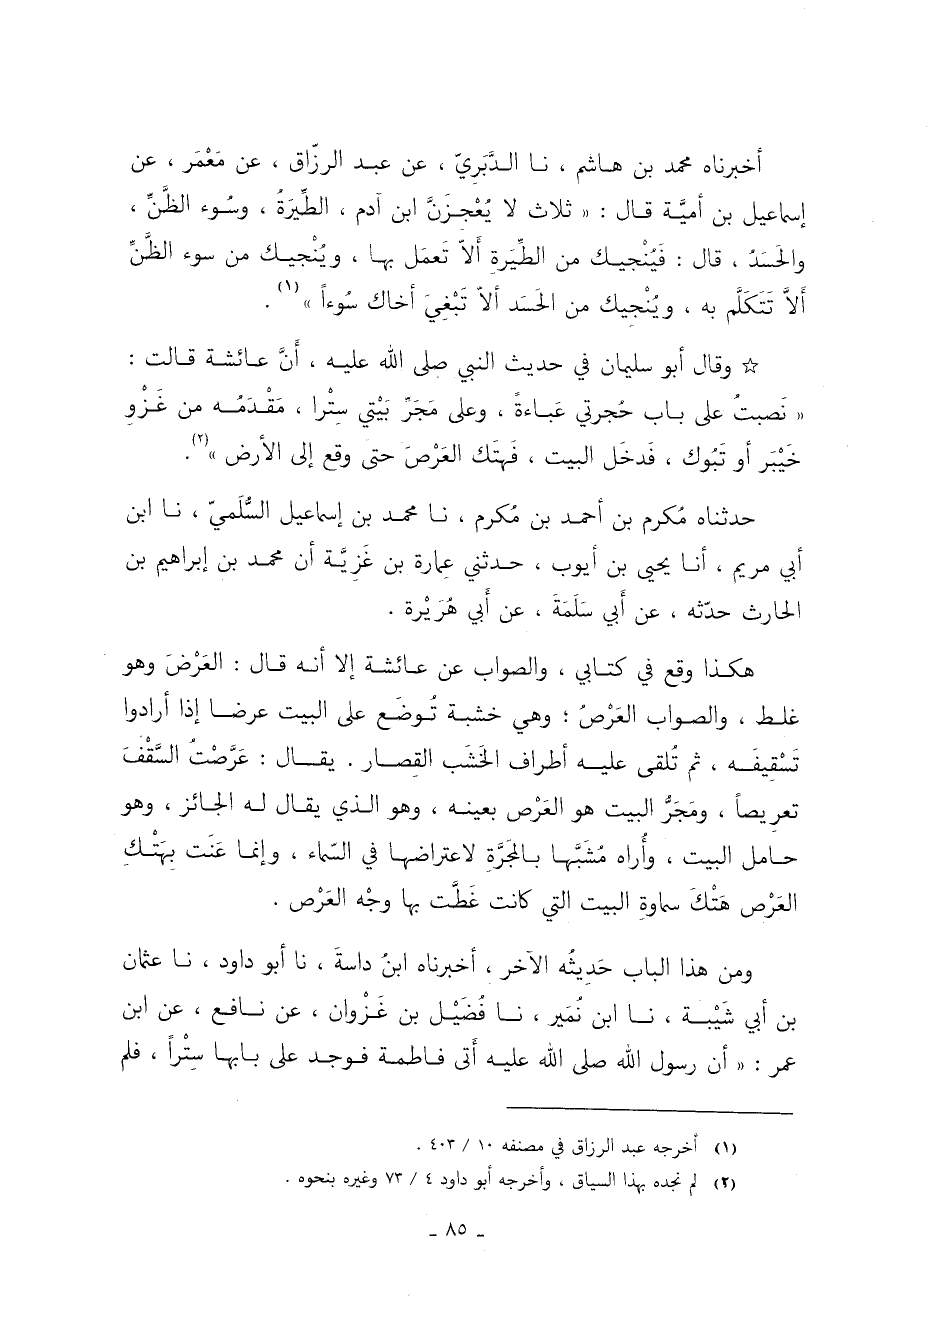 أخبرناه محمد بن هاشم ، نا الدَّبَريّ ، عن عبد الرزّاق ، عن مَعْمَر ، عن
إسماعيل بن أميّة قال : « ثلاث لا يُعْجِزَنَّ ابن آدم ، الطِّيَرَةُ ، وسُوء الظنّ ،
والحَسَدُ ، قال : فيُنْجيك من الطِّيَرَة ألاّ تَعمَل بها ، ويُنْجيك من سوء الظَّنِّ
ألاَّ تَتَكلَّم به ، ويُنْجيك من الحَسَد ألاّ تَبْغيَ أخاك سُوءاً »(١) .
☆ وقال أبو سليمان في حديث النبي صلى الله عليه ، أنَّ عائشة قالت :
« نَصبتُ على باب حُجرتي عَباءةً ، وعلى مَجَرِّ بَيْتي سِتْرا ، مَقْدَمَه من غَزْوِ
خَيْبَر أو تَبُوك ، فدخل البيت ، فَهتَك العَرْصَ حتى وقع إلى الأرض »(٢).
حدثناه مُكرم بن أحمد بن مُكرم ، نا محمد بن إسماعيل السُّلَميّ ، نا ابن
أبي مريم ، أنا يحيى بن أيوب ، حدثني عمارة بن غَزِيَّة أن محمد بن إبراهيم بن
الحارث حدّثه ، عن أبي سَلَمَةَ ، عن أبي هُرَيْرة .
هكذا وقع في كتابي ، والصواب عن عائشة إلا أنه قال : العَرْضَ وهو
غلط ، والصواب العَرْصُ ؛ وهي خشبة تُوضَع على البيت عرضا إذا أرادوا
تَسْقِيفَه ، ثم تُلقى عليه أطراف الخَشَب القصار . يقال : عَرَّصْتُ السَّقْفَ
تعريصاً ، ومَجَرُّ البيت هو العَرْص بعينه ، وهو الذي يقال له الجائز ، وهو
حامل البيت ، وأُراه مُشَبَّها بالمجَرَّة لاعتراضها في السَّماء ، وإنما عَنَت بِهَتْك
العَرْص هَتْكَ سماوة البيت التي كانت غَطَّت بها وجْه العَرْص .
ومن هذا الباب حَديثُه الآخر ، أخبرناه ابنُ داسةَ ، نا أبو داود ، نا عثمان
بن أبي شَيْبة ، نا ابن نُمَير ، نا فُضَيْل بن غَزْوان ، عن نافع ، عن ابن
عمر : « أن رسول الله صلى الله عليه أتى فاطمة فوجد على بابها سِتْراً ، فلم
(١) أخرجه عبد الرزاق في مصنفه ١٠ / ٤٠٣ .
(٢) لم نجده بهذا السياق ، وأخرجه أبو داود ٤ / ٧٣ وغيره بنحوه .
ـ ٨٥ ـ